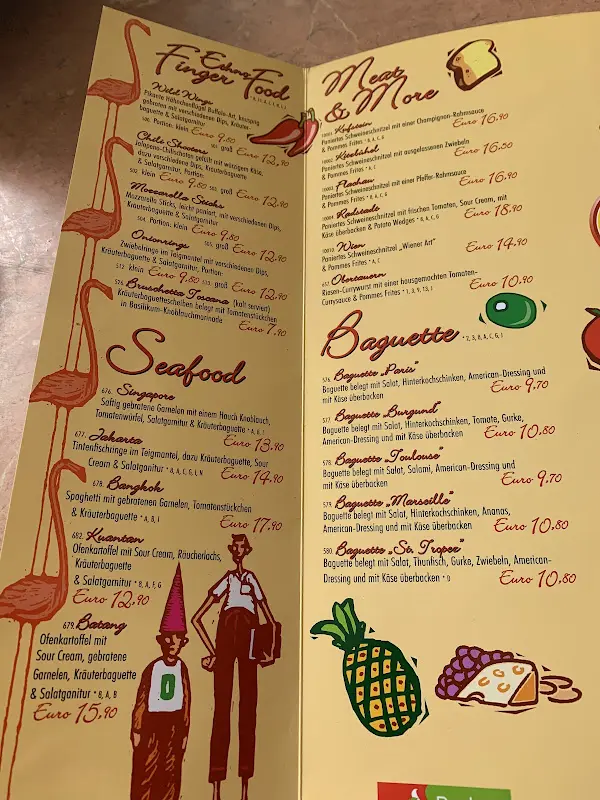 Echng
Finger Food
Wild Wings
Pikante Hähnchenflügel Buffalo-Art, knusprig
gebraten mit verschiedenen Dips, Kräuter-
baguette & Salatgarnitur
500. Portion: klein Euro 9,80 501. groß Euro 12,90
Chili Shooters
Jalapeno-Chilischoten gefüllt mit würzigem Käse,
dazu verschiedene Dips, Kräuterbaguette
& Salatgarnitur, Portion:
502. klein Euro 9,80 503. groß Euro 12,90
Mozzarella Sticks
Mozzarella Sticks, leicht paniert, mit verschiedenen Dips,
Kräuterbaguette & Salatgarnitur
504. Portion: klein Euro 9,80 505. groß Euro 12,90
Onionrings
Zwiebelringe im Teigmantel mit verschiedenen Dips,
Kräuterbaguette & Salatgarnitur, Portion:
512. klein Euro 9,80 513. groß Euro 12,90
526. Bruschetta Toscana (kalt serviert)
Kräuterbaguettescheiben belegt mit Tomatenstückchen
in Basilikum-Knoblauchmarinade Euro 7,90
Seafood
676. Singapore
Saftig gebratene Garnelen mit einem Hauch Knoblauch,
Tomatenwürfel, Salatgarnitur & Kräuterbaguette * A, B, I
Euro 13,90
677. Jakarta
Tintenfischringe im Teigmantel, dazu Kräuterbaguette, Sour
Cream & Salatganitur * B, A, C, G, I, N Euro 14,90
678. Bangkok
Spaghetti mit gebratenen Garnelen, Tomatenstückchen
& Kräuterbaguette * A, B, I
Euro 17,90
682. Kuantan
Ofenkartoffel mit Sour Cream, Räucherlachs,
Kräuterbaguette
& Salatgarnitur * 8, A, F, G
Euro 12,90
679. Batang
Ofenkartoffel mit
Sour Cream, gebratene
Garnelen, Kräuterbaguette
& Salatganitur * 8, A, B
Euro 15,90
0
Meat
& More
10001. Kufstein
Paniertes Schweineschnitzel mit einer Champignon-Rahmsauce
& Pommes Frites * A, C, G Euro 16,90
10002. Kitzbühel
Paniertes Schweineschnitzel mit ausgelassenen Zwiebeln
& Pommes Frites * A, C Euro 16,50
10003. Flachau
Paniertes Schweineschnitzel mit einer Pfeffer-Rahmsauce
& Pommes Frites * A, C, G Euro 16,90
10004. Radstadt
Paniertes Schweineschnitzel mit frischen Tomaten, Sour Cream, mit
Käse überbacken & Potato Wedges * 8, A, C, G Euro 18,90
10010. Wien
Paniertes Schweineschnitzel „Wiener Art"
& Pommes Frites * A, C Euro 14,90
612. Obertauern
Riesen-Currywurst mit einer hausgemachten Tomaten-
Currysauce & Pommes Frites * 1, 3, 9, 13, I Euro 10,90
Baguette * 2, 3, 8, A, C, G, I
576. Baguette „Paris"
Baguette belegt mit Salat, Hinterkochschinken, American-Dressing und
mit Käse überbacken Euro 9,70
577. Baguette „Burgund"
Baguette belegt mit Salat, Hinterkochschinken, Tomate, Gurke,
American-Dressing und mit Käse überbacken Euro 10,80
578. Baguette „Toulouse"
Baguette belegt mit Salat, Salami, American-Dressing und
mit Käse überbacken Euro 9,70
579. Baguette „Marseille"
Baguette belegt mit Salat, Hinterkochschinken, Ananas,
American-Dressing und mit Käse überbacken Euro 10,80
580. Baguette „St. Tropez"
Baguette belegt mit Salat, Thunfisch, Gurke, Zwiebeln, American-
Dressing und mit Käse überbacken * D Euro 10,80